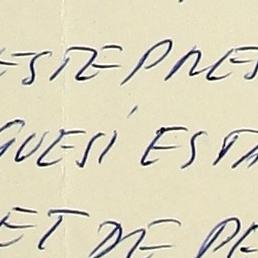 ESTE PRES
QUE SI ESTA
ET DE PE